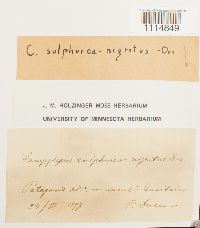 1114849
C. sulphurea-nigritus - Dus !
J. M. HOLZINGER MOSS HERBARIUM
UNIVERSITY OF MINNESOTA HERBARIUM
Campylopus sulphureo nigritus Dus
Patagonia
1897
P. Dusen